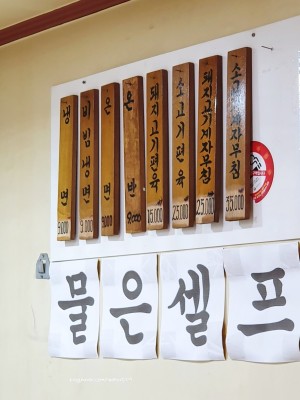 냉면 9,000
비빔냉면 9,000
온면 9,000
온반 9,000
돼지고기편육 15,000
소고기편육 25,000
돼지고기겨자무침 25,000
소고기겨자무침 35,000
물은셀프